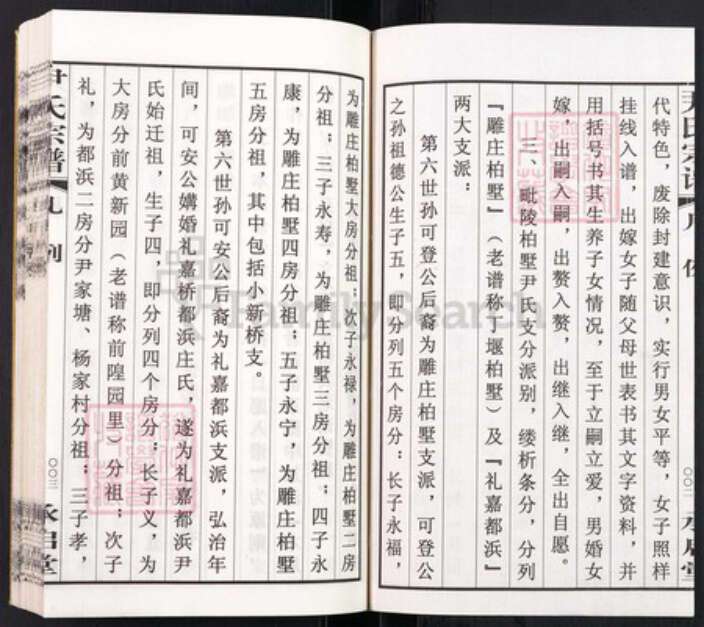 代特色，废除封建意识，实行男女平等，女子照样
挂线入谱，出嫁女子随父母世表书其文字资料，并
用括号书其生养子女情况，至于立嗣立爱，男婚女
嫁，出嗣入嗣，出赘入赘，出继入继，全出自愿。
三、毗陵柏墅尹氏支分派别，缕析条分，分列
『雕庄柏墅』（老谱称丁堰柏墅）及『礼嘉都浜』
两大支派：
第六世孙可登公后裔为雕庄柏墅支派，可登公
之孙祖德公生子五，即分列五个房分：长子永福，
为雕庄柏墅大房分祖；次子永禄，为雕庄柏墅二房
分祖；三子永寿，为雕庄柏墅三房分祖；四子永
康，为雕庄柏墅四房分祖；五子永宁，为雕庄柏墅
五房分祖，其中包括小新桥支。
第六世孙可安公后裔为礼嘉都浜支派，弘治年
间，可安公媾婚礼嘉桥都浜庄氏，遂为礼嘉都浜尹
氏始迁祖，生子四，即分列四个房分：长子义，为
大房分前黄新园（老谱称前隍园里）分祖；次子
礼，为都浜二房分尹家塘、杨家村分祖；三子孝，
尹氏宗谱
凡例
〇〇三
永启堂
FamilySearch